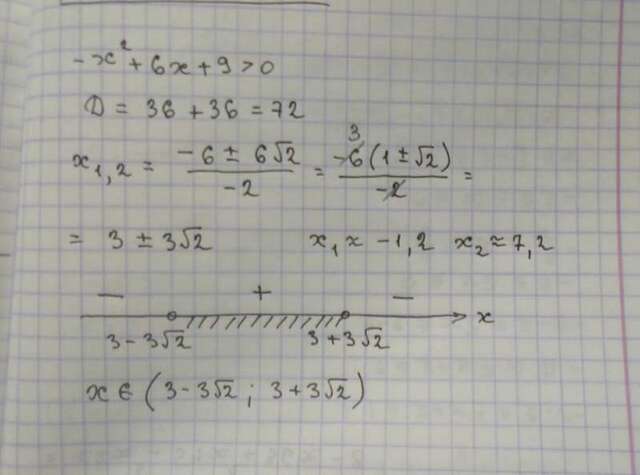 -x² + 6x + 9 > 0
D = 36 + 36 = 72
x₁,₂ = (-6 ± 6√2)/(-2) = (-6(1 ± √2))/(-2) = 3
= 3 ± 3√2 x₁ ≈ -1,2 x₂ ≈ 7,2
− + − 
3 - 3√2 3 + 3√2 x
x ∈ (3 - 3√2 ; 3 + 3√2)